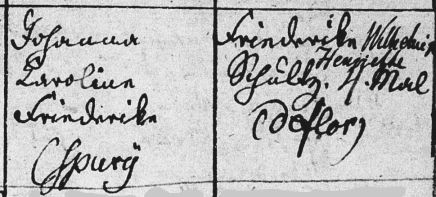 Johanna
Caroline
Friederike
(Spurÿ
Friederike Wilhelmine
Henriette
Schultz. 4. Mal
(deflor)